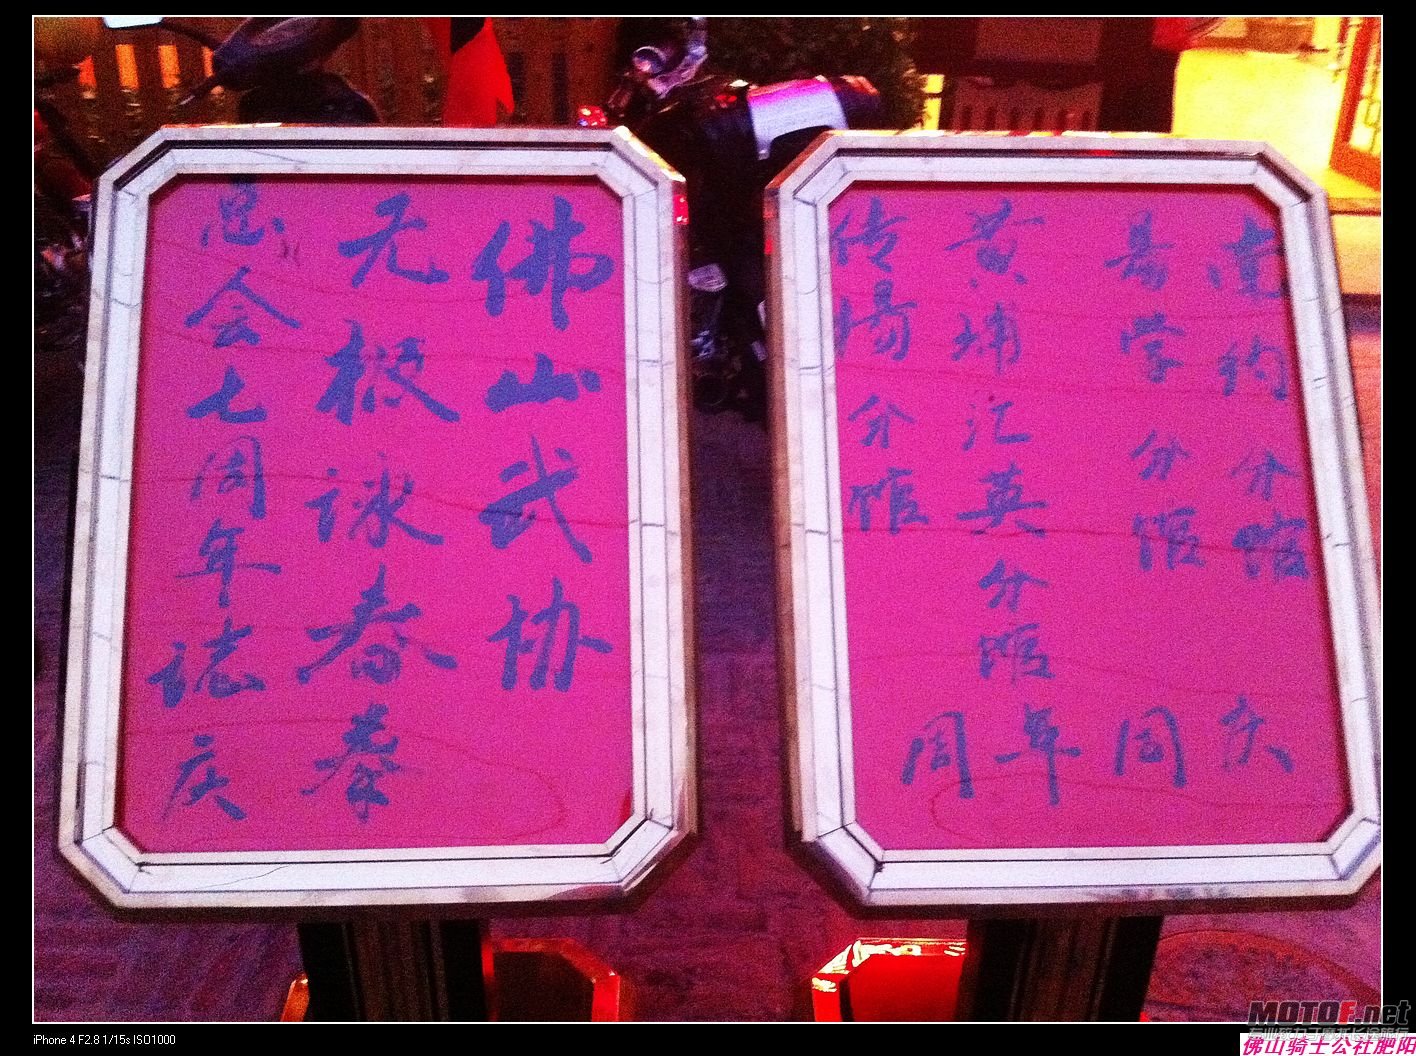 佛山武协
无极咏春拳
总会七周年志庆
南约分馆
易学分馆
黄埔汇英分馆
传扬分馆
周年同庆
iPhone 4 F2.8 1/15s ISO1000
MOTOF.net
佛山骑士公社肥阳